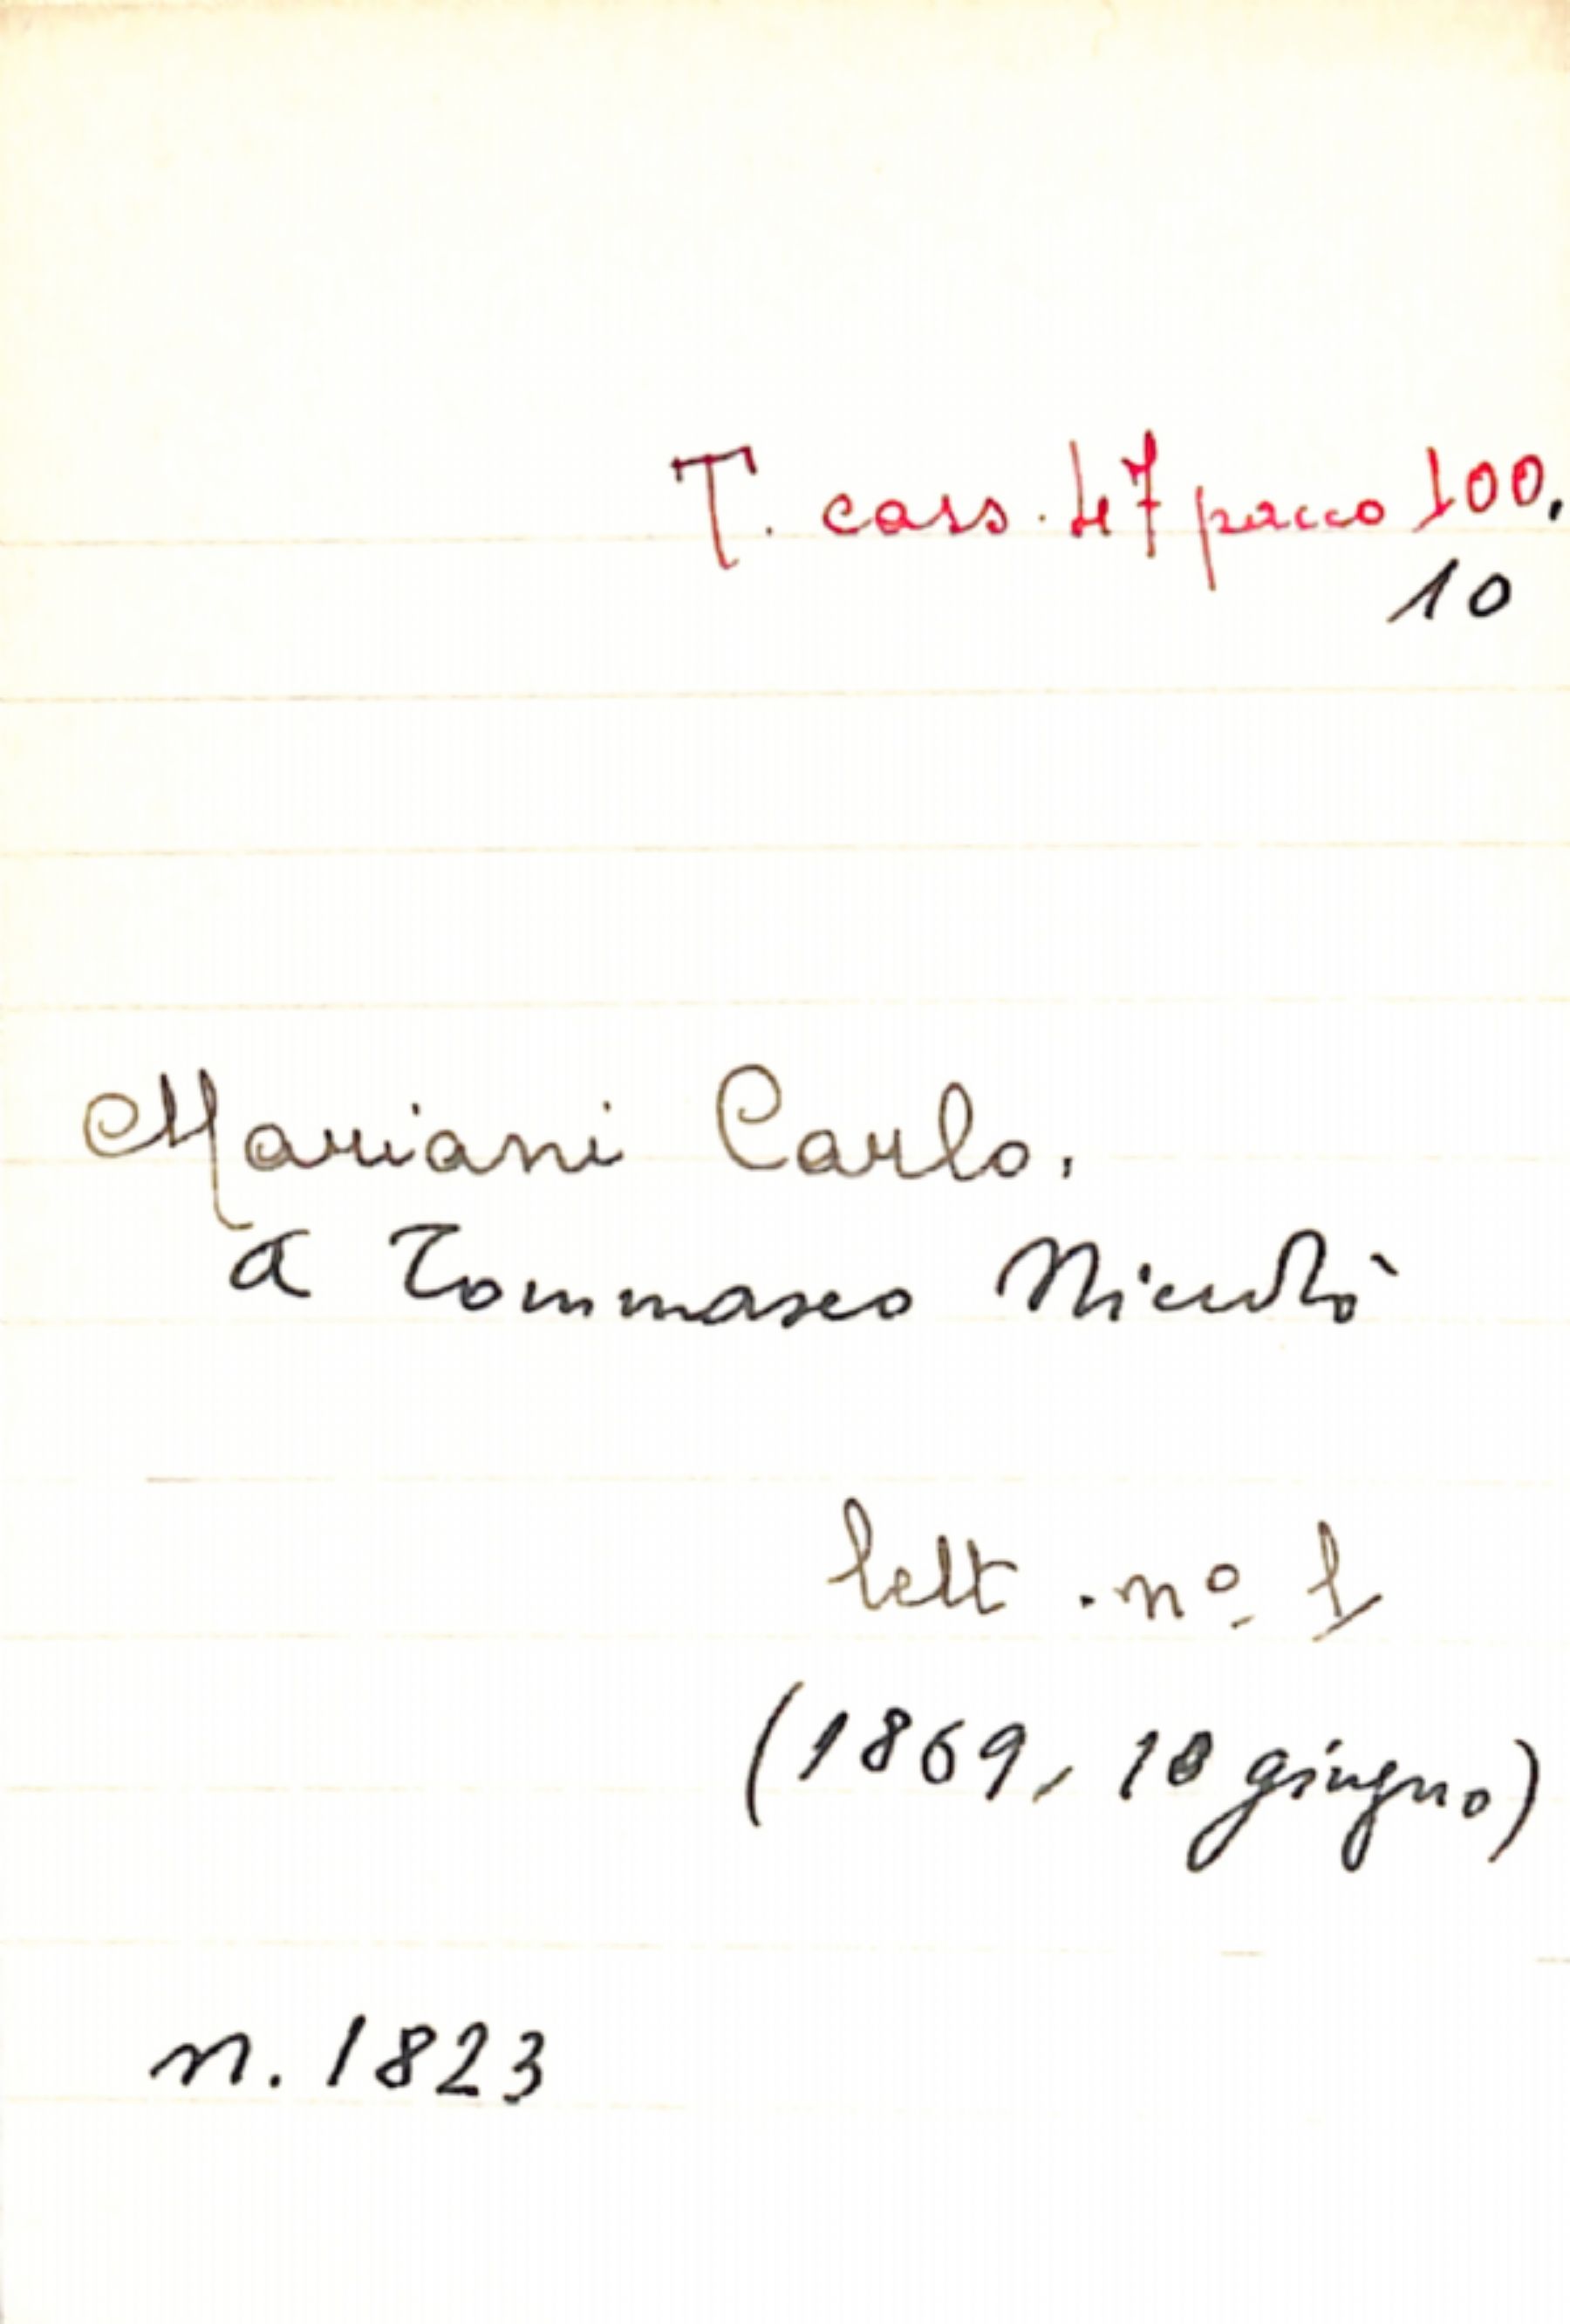 T. cass. 47 pacco 100.
10
Mariani Carlo.
a Tommaseo Niccolò
lett. nº 1
(1869, 18 giugno)
n. 1823